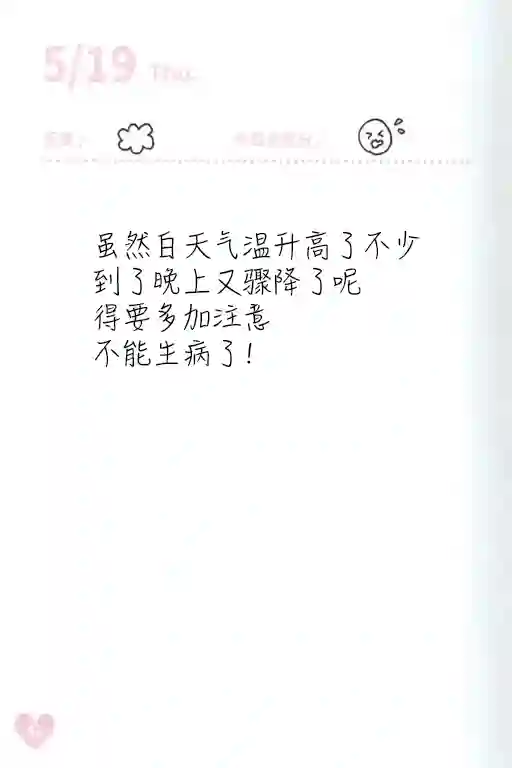 5/19 Thu.
虽然白天气温升高了不少
到了晚上又骤降了呢
得要多加注意
不能生病了!